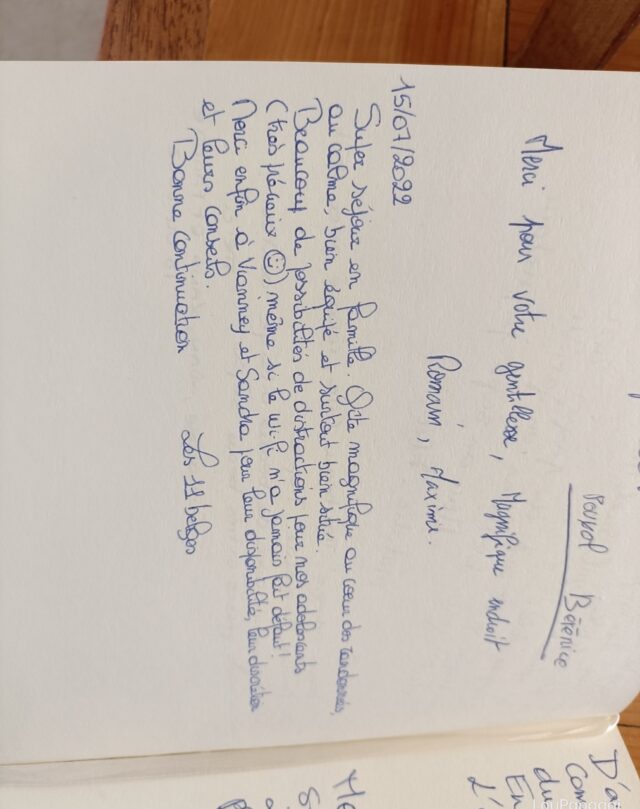 Bérénice
Merci pour votre gentillesse, Magnifique endroit
Romain, Maxime.
15/07/2022
Super séjour en famille. Gîte magnifique au coeur des randonnées,
au calme, bien équipé et surtout bien situé.
Beaucoup de possibilités de distractions pour nos adolescents
(très précieux ☺) même si le wi-fi n'a jamais fait défaut!
Merci enfin à Vianney et Sandra pour leur disponibilité, leur discrétion
et leurs conseils.
Bonne continuation
Les 11 belges
D'a
Com
du
En
L'